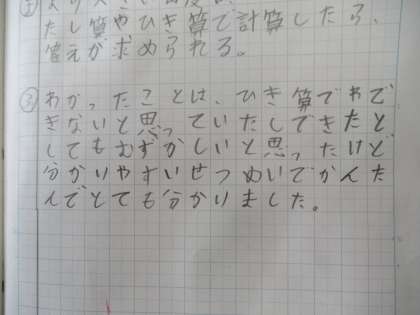 たし算やひき算で計算したら、
答えが求められる。
③わかったことは、ひき算でやで
きないと思っていたしできたと、
してもむずかしいと思ったけど、
分かりやすいせつめいでかんた
んでとても分かりました。